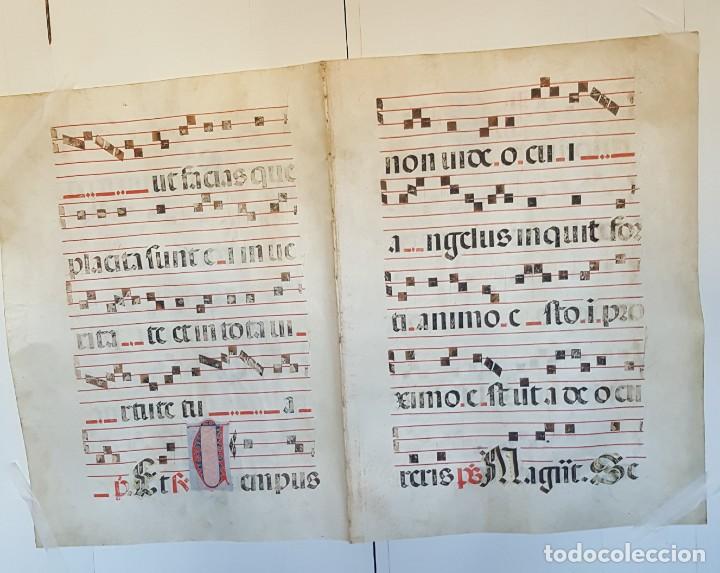 ut facias que
placita sunt e_i in ue
rita_te et in tota ui_
_rtute tu_a
_p. Et R Tempus
non uide_o.cu_i_
a__ngelus inquit for
ti.animo.e_sto.i.pro
ximo.e_st ut a deo cu
reris ps Magnit. Se
todocoleccion.net